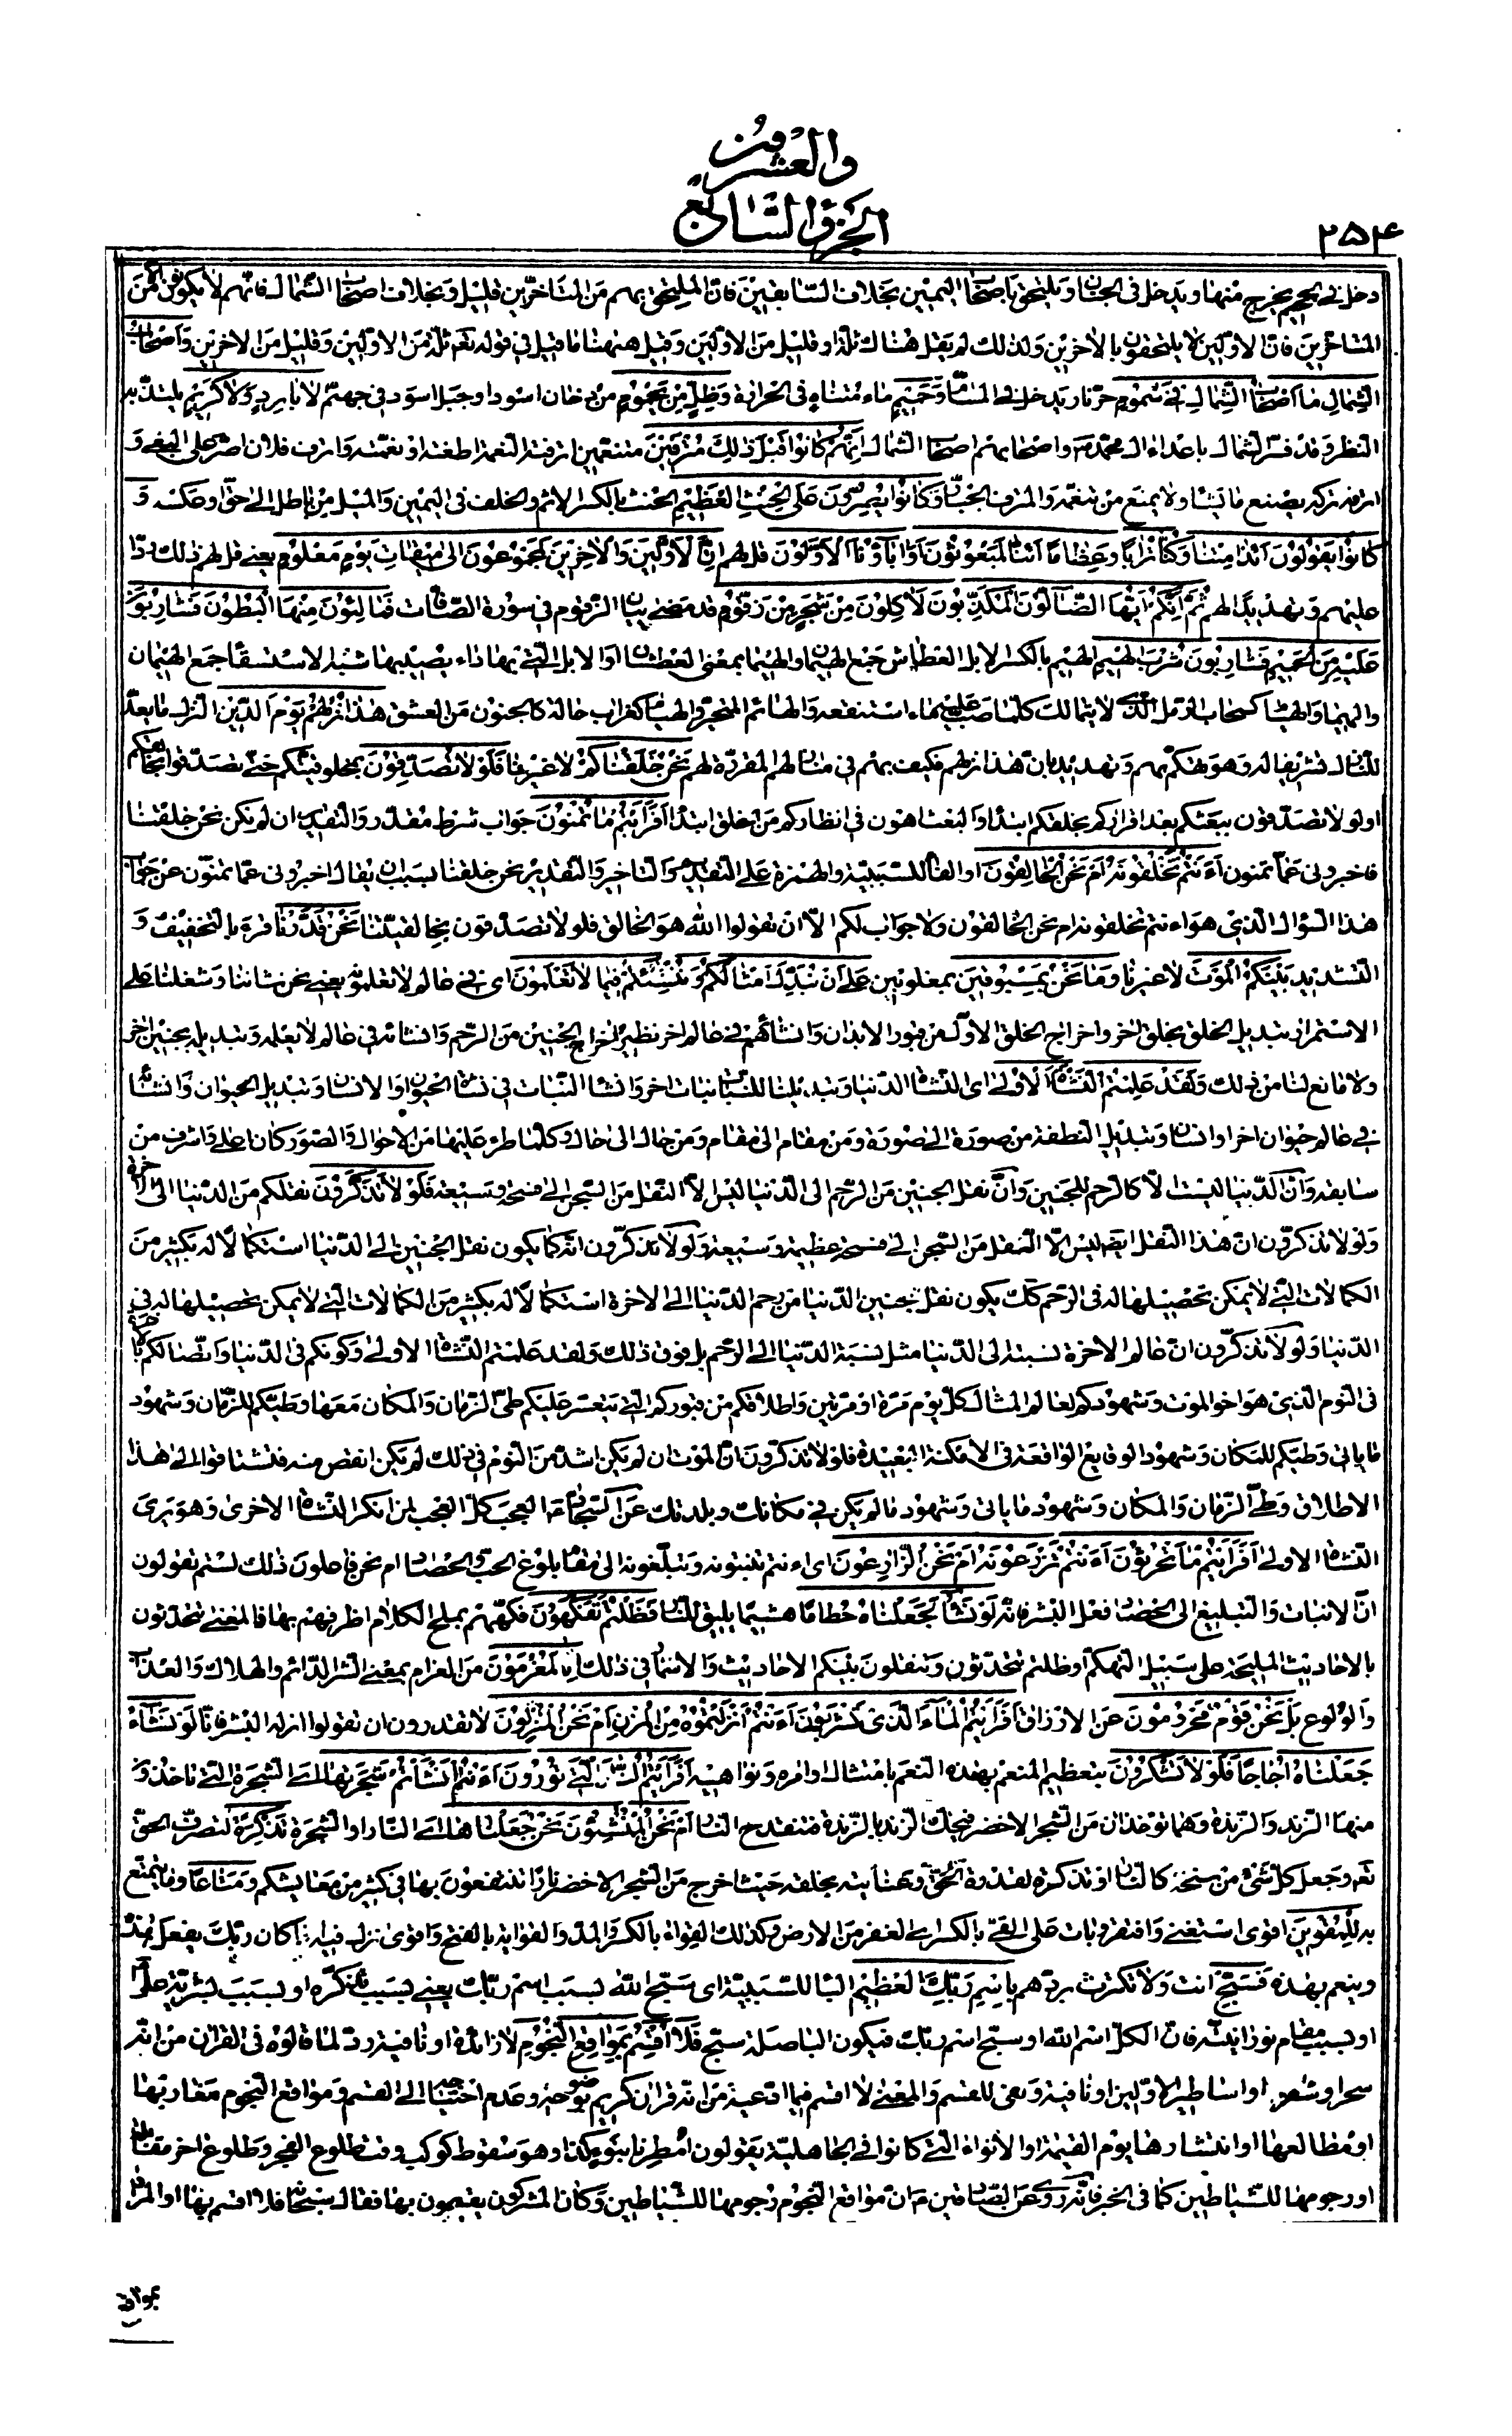 والعشرون
الجزو السابع
٢٥٤
دخل فى الجحيم يخرج منها ويدخل فى الجنان ويلتحق باصحاب اليمين بخلاف السابقين فان الملتحق بهم من المتاخرين قليل وبخلاف اصحاب الشمال فانهم لا يكونون الا من
المتاخرين فان الاولين لا يلتحقون بالاخرين ولذلك لم يقل هناك ثلة او قليل من الاولين وقيل ههنا ما قيل فى قوله تع ثلة من الاولين وقليل من الاخرين وَاَصْحابُ
الشِّمالِ ما اَصْحابُ الشِّمالِ فى سَمُومٍ حر نار يدخل فى المسام وَحَميمٍ ماء متناه فى الحرارة وَظِلٍّ مِنْ يَحْمُومٍ من دخان اسود او جبل اسود فى جهنم لا بارِدٍ وَلا كَريمٍ يلتذ به
النظر وقد فسر الشمال باعداء ال محمد ص واصحابهم اصحاب الشمال اِنَّهُمْ كانُوا قَبْلَ ذلِكَ مُتْرَفينَ متنعمين اترفته النعمة اطغته او نعمته واترف فلان اصر على البغى و
اترفه تركه يصنع ما يشاء ولا يمنع من تنعمه والمترف الجبار وَكانُوا يُصِرُّونَ عَلَى الْحِنْثِ الْعَظيمِ الحنث بالكسر الاثم والخلف فى اليمين والميل من باطل الى حق وعكسه وَ
كانُوا يَقُولُونَ اَئِذا مِتْنا وَكُنّا تُرابًا وَعِظامًا اَئِنّا لَمَبْعُوثُونَ اَوَ اٰباؤُنَا الْاَوَّلُونَ قل لهم اِنَّ الْاَوَّلينَ وَالْاٰخِرينَ لَمَجْمُوعُونَ اِلى ميقاتِ يَوْمٍ مَعْلُومٍ يعنى قل لهم ذلك ردا
عليهم وتهديدا لهم ثُمَّ اِنَّكُمْ اَيُّهَا الضّالُّونَ الْمُكَذِّبُونَ لَاٰكِلُونَ مِنْ شَجَرٍ مِنْ زَقُّومٍ قد مضى بيان الزقوم فى سورة الصافات فَمالِئُونَ مِنْهَا الْبُطُونَ فَشارِبُونَ
عَلَيْهِ مِنَ الْحَميمِ فَشارِبُونَ شُرْبَ الْهيمِ الهيم بالكسر الابل العطاش جمع الهيمان والهيما بمعنى العطشان او الابل التى بها داء يصيبها شبه الاستسقا جمع الهيمان
والهيما والهيام كسحاب الرمل الذى لا يتمالك كلما صب عليه ماء استنقعه والهائم المتحير والهيام كغراب حالة كالجنون من العشق هذا نُزُلُهُمْ يَوْمَ الدّينِ النزل ما يعد
للنازل تشريفا له وهو تهكم بهم وتهديد بان هذا نزلهم فكيف بهم فى منازلهم المقررة لهم نَحْنُ خَلَقْناكُمْ لا غيرنا فَلَوْلا تُصَدِّقُونَ بمخلوقيتكم حتى تصدقوا بخالقكم
او لولا تصدقون ببعثكم بعد اقراركم بخلقكم ابتداء والبعث اهون فى انظاركم من الخلق ابتداء اَفَرَاَيْتُمْ ما تُمْنُونَ جواب شرط مقدر والتقدير ان لم يكن نحن خلقنا
فاخبرونى عما تمنون ءَاَنْتُمْ تَخْلُقُونَهُ اَمْ نَحْنُ الْخالِقُونَ او الفاء للسببية والهمزة على التقديم والتاخير والتقدير نحن خلقنا بسبب ان يقال اخبرونى عما تمنون عن جواب
هذا السؤال الذى هو ءانتم تخلقونه ام نحن الخالقون ولا جواب لكم الا ان تقولوا الله هو الخالق فلولا تصدقون بخالقيتنا نَحْنُ قَدَّرْنا قرء بالتخفيف و
التشديد بَيْنَكُمُ الْمَوْتَ لا غيرنا وَما نَحْنُ بِمَسْبُوقينَ بمغلوبين عَلى اَنْ نُبَدِّلَ اَمْثالَكُمْ وَنُنْشِئَكُمْ فيما لا تَعْلَمُونَ اى فى عالم لا تعلمونه يعنى نحن شاننا وشغلنا على
الاستمرار تبديل الخلق بخلق اخر واخراج الخلق الاول من قبور الابدان وانشائهم فى عالم اخر نظير اخراج الجنين من الرحم وانشائه فى عالم لا يعلمه وتبديله بجنين اخر
ولا مانع لنا من ذلك وَلَقَدْ عَلِمْتُمُ النَّشْاَةَ الْاُولى اى النشاة الدنيا وتبديلنا للنبات بنبات اخر وانشاء النبات فى نشاة الحيوان او الانسان وتبديل الحيوان وانشائه
فى عالم حيوان اخر او انسان وتبديل النطفة من صورة الى صورة ومن مقام الى مقام ومن حال الى حال وكلما طرء عليها من الاحوال والصور كان اعلى واشرف من
سابقه وان الدنيا ليست الا كالرحم للجنين وان نقل الجنين من الرحم الى الدنيا ليس الا النقل من السجن الى فسحة وسيعة فَلَوْلا تَذَكَّرُونَ نقلكم من الدنيا الى الاخرة
ولولا تذكرون ان هذا النقل ايضا ليس الا النقل من السجن الى فسحة عظيمة وسيعة ولولا تذكرون انه كما يكون نقل الجنين الى الدنيا استكمالا له بكثير من
الكمالات التى لا يمكن تحصيلها له فى الرحم كك يكون نقل جنين الدنيا من رحم الدنيا الى الاخرة استكمالا له بكثير من الكمالات التى لا يمكن تحصيلها له فى
الدنيا ولولا تذكرون ان عالم الاخرة نسبته الى الدنيا مثل نسبة الدنيا الى الرحم بل فوق ذلك ولقد علمتم النشاة الاولى وكونكم فى الدنيا واتصالكم بالاخرة
فى النوم الذى هو اخو الموت وشهودكم لعالم المثال كل يوم مرة او مرتين واطلاقكم من قبوركم التى تعسر عليكم طى الزمان والمكان معها وطيكم للزمان وشهود
ما ياتى وطيكم للمكان وشهود الوقايع الواقعة فى الامكنة البعيدة فلولا تذكرون ان الموت ان لم يكن اشد من النوم فى ذلك لم يكن انقص منه فتشتاقوا الى هذا
الاطلاق وطى الزمان والمكان وشهود ما ياتى وشهود ما لم يكن فى مكانات وبلدنات عن السجاد ع العجب كل العجب لمن انكر النشاة الاخرى وهو يرى
النشاة الاولى اَفَرَاَيْتُمْ ما تَحْرُثُونَ ءَاَنْتُمْ تَزْرَعُونَهُ اَمْ نَحْنُ الزّارِعُونَ اى ءانتم تنبتونه وتبلغونه الى مقام بلوغ الحب والحصاد ام نحن فاعلون ذلك لستم تقولون
ان الانبات والتبليغ الى الحصاد فعل البشر فانه لَوْ نَشاءُ لَجَعَلْناهُ حُطامًا هشيما يليق للنار فَظَلْتُمْ تَفَكَّهُونَ فكههم بملح الكلام اطرفهم بها فالمعنى تتحدثون
بالاحاديث المليحة على سبيل التهكم او ظلتم تتحدثون وتنقلون بينكم الاحاديث والاسمار فى ذلك اِنّا لَمُغْرَمُونَ من الغرام بمعنى الشر الدائم والهلاك والعذاب
والولوع بَلْ نَحْنُ قَوْمٌ مَحْرُومُونَ عن الارزاق اَفَرَاَيْتُمُ الْماءَ الَّذى تَشْرَبُونَ ءَاَنْتُمْ اَنْزَلْتُمُوهُ مِنَ الْمُزْنِ اَمْ نَحْنُ الْمُنْزِلُونَ لا تقدرون ان تقولوا انزله البشر فانا لَوْ نَشاءُ
جَعَلْناهُ اُجاجًا فَلَوْلا تَشْكُرُونَ بتعظيم المنعم بهذه النعم بامتثال اوامره ونواهيه اَفَرَاَيْتُمُ النّارَ الَّتى تُورُونَ ءَاَنْتُمْ اَنْشَاْتُمْ شَجَرَتَها اى الشجرة التى تاخذون
منها الزند والزندة وهما تؤخذان من الشجر الاخضر فيحك الزند بالزندة فتنقدح النار اَمْ نَحْنُ الْمُنْشِئُونَ نَحْنُ جَعَلْناها اى النار او الشجرة تَذْكِرَةً لتصرف الحق
تع وجعل كل شىء من سنخه كالنار او تذكرة لقدرة الحق وعنايته بخلقه حيث اخرج من الشجر الاخضر نارا تنتفعون بها فى كثير من معايشكم وَمَتاعًا وما يتمتع
به لِلْمُقْوينَ اقوى استغنى وافتقر وبات على القى بالكسر اى القفر من الارض وكذلك القواء بالكسر والمد والقواية بالفتح واقوى نزل فيه اذا كان ربك يفعل هذه
وينعم بهذه فَسَبِّحْ انت ولا تكترث بردهم بِاسْمِ رَبِّكَ الْعَظيمِ الباء للسببية اى سبح الله بسبب اسم ربك يعنى بسبب تذكره او بسبب بشرية على ع
او بسبب مقام نورانيته فان الكل اسم الله او سبح اسم ربك فيكون الباء صلة سبح فَلا اُقْسِمُ بِمَواقِعِ النُّجُومِ لا زائدة او نافية رد لما قالوه فى القران من انه
سحر او شعر او اساطير الاولين او نافية ونفى للقسم والمعنى لا اقسم فيما ادعيه من انه قران كريم لوضوحه وعدم احتياجه الى القسم ومواقع النجوم مغاربها
او مطالعها او انتشارها يوم القيمة او الانواء التى كانوا فى الجاهلية يقولون امطرنا بنوء كذا وهو سقوط كوكب وقت طلوع الفجر وطلوع اخر مقابله
او رجومها للشياطين كما فى الخبر فانه روى عن الصادقين ع ان مواقع النجوم رجومها للشياطين وكان المشركون يقسمون بها فقال سبحانه فلا اقسم بها او المراد